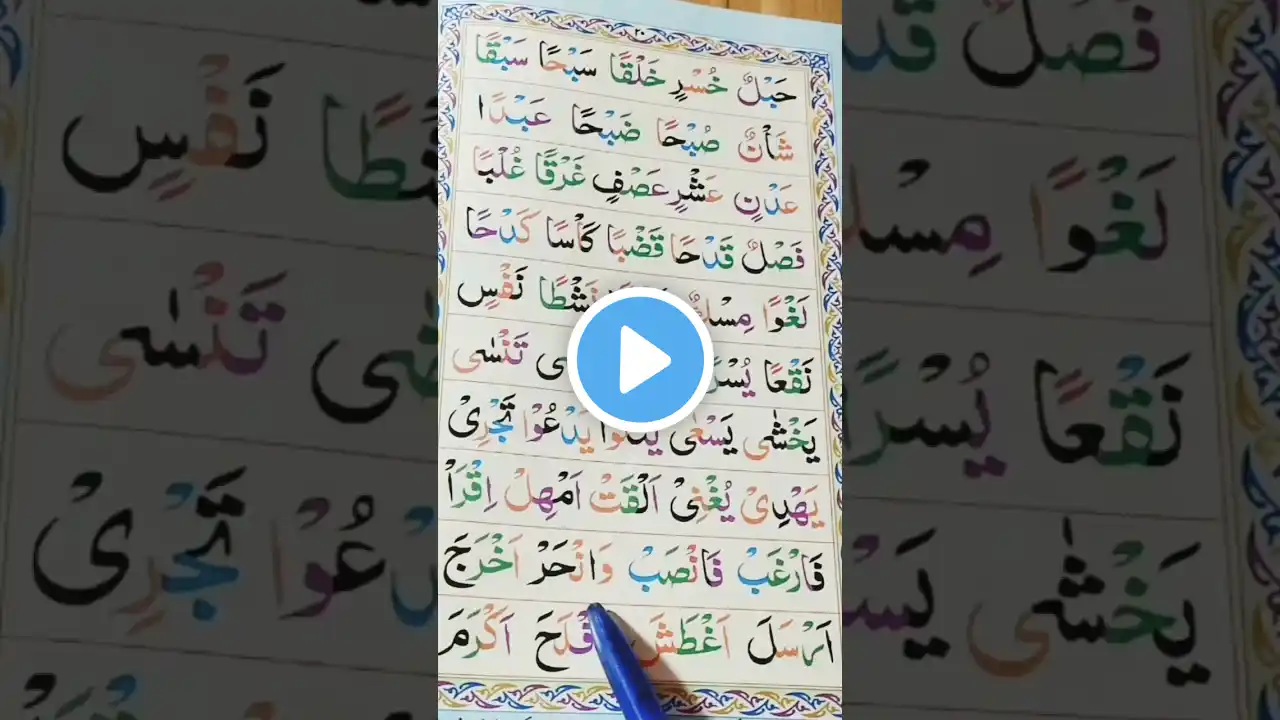 ٢٠
حَبْلٌ خُسْرٍ خَلْقًا سَبْحًا سَبْقًا
شَأْنٌ صُبْحًا ضَبْحًا عَبْدًا
عَدْنٍ عَشْرٍ عَصْفٍ غَرْقًا غُلْبًا
فَصْلٌ قَدْحًا قَضْبًا كَأْسًا كَدْحًا
لَغْوًا مِسْكٌ نَشْطًا نَفْسٍ
نَقْعًا يُسْرًا تَنْسٰى
يَخْشٰى يَسْعٰى يَدْعُوْا تَجْرِىْ
يَهْدِىْ يُغْنِىْ اَلْقَتْ اَمْهِلْ اِقْرَاْ
فَارْغَبْ فَانْصَبْ وَانْحَرْ اَخْرَجَ
اَرْسَلَ اَغْطَشَ اَفْلَحَ اَكْرَمَ